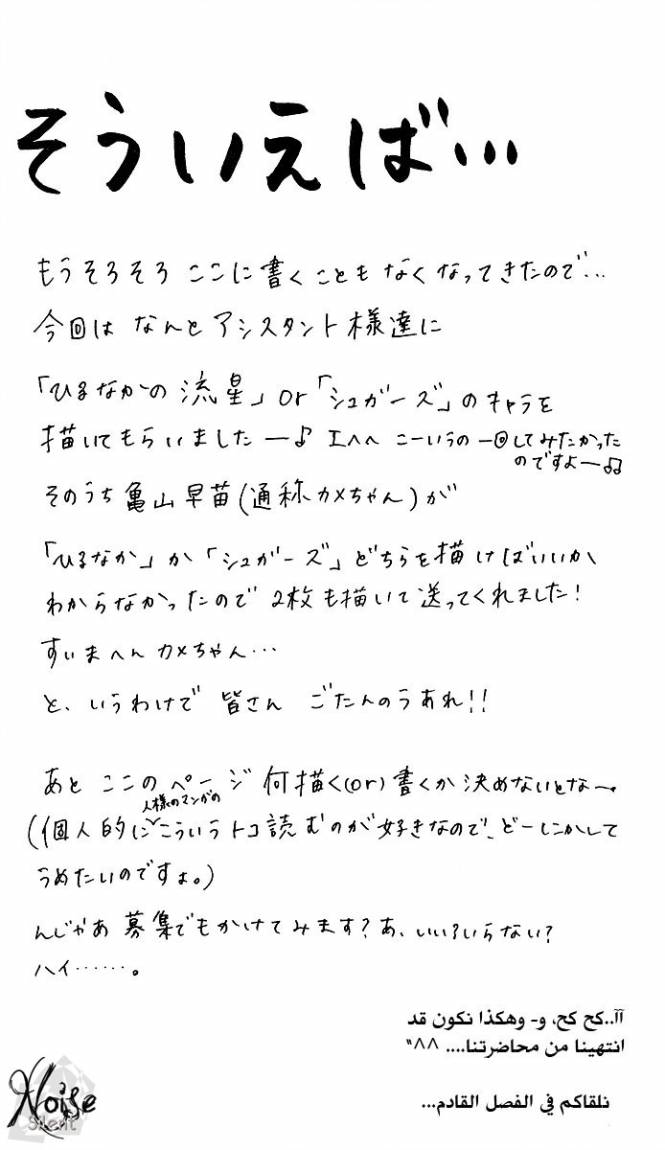 そういえば…
もうそろそろ ここに書くこともなくなってきたので…
今回は なんと アシスタント様達に
「ひるなかの流星」or「シュガーズ」のキャラを
描いてもらいましたー♪ エヘヘ こーいうの一回してみたかった
のですよー♫
そのうち亀山早苗(通称カメちゃん)が
「ひるなか」か「シュガーズ」どちらを描けばいいか
わからなかったので 2枚も描いて送ってくれました!
すいまへん カメちゃん…
と、いうわけで 皆さん ごたんのうあれ!!
あと ここのページ 何描く(or)書くか決めないとなー。
人様のマンガの
(個人的にこういうトコ読むのが好きなので、どーにかして
うめたいのですよ。)
んじゃあ 募集でもかけてみます?あ、いい?いらない?
ハイ……。
آآ..كح كح، و- وهكذا نكون قد
انتهينا من محاضرتنا.... ^^"
نلقاكم في الفصل القادم...
Noise
Silent